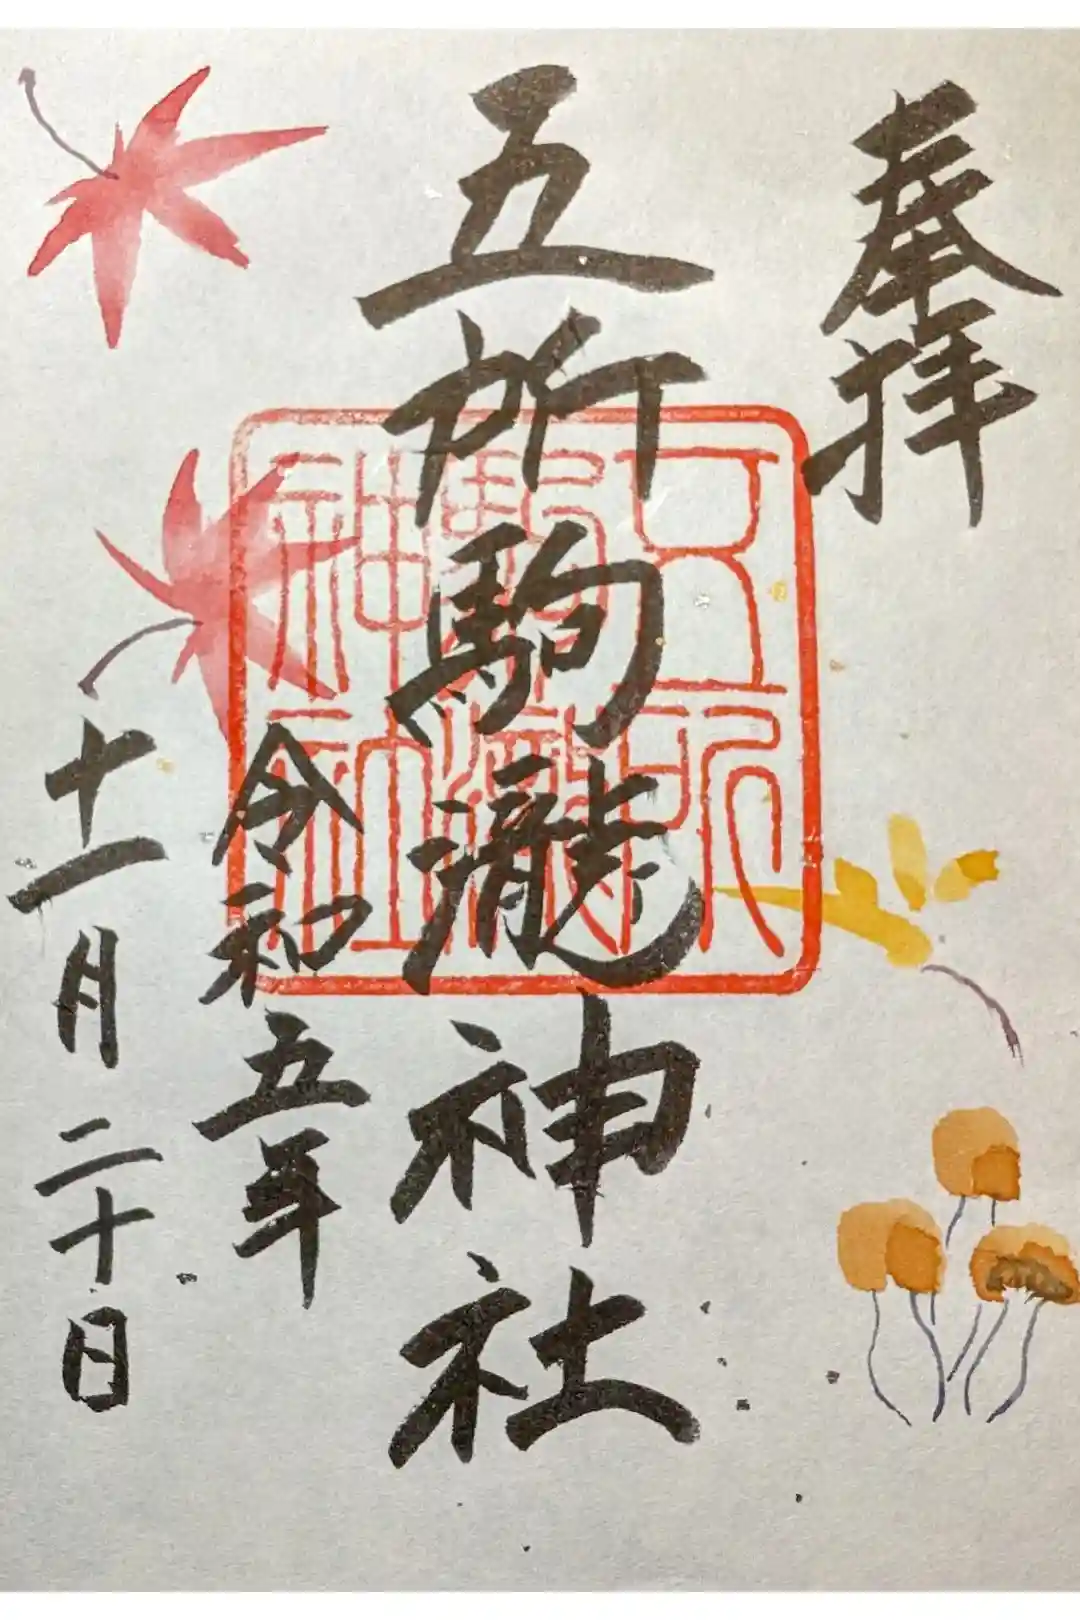 奉拝
五所駒瀧神社
令和五年
十一月二十日
五所
駒瀧
神社